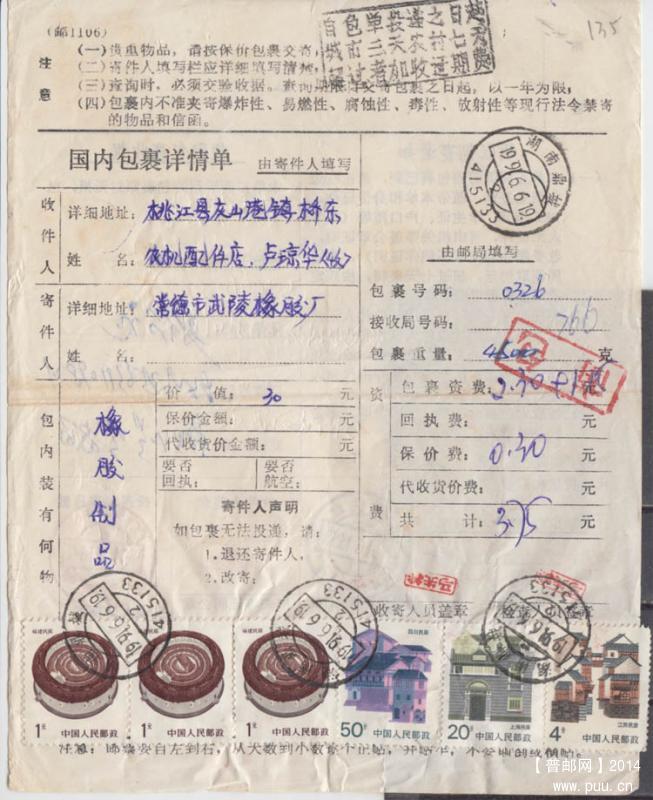 (邮1106)
135
注意
(一)贵重物品,请按保价包裹交寄,
(二)寄件人填写栏应详细填写清楚,
(三)查询时,必须交验收据。查询期限自交寄包裹之日起,以一年为限,
(四)包裹内不准夹寄爆炸性、易燃性、腐蚀性、毒性、放射性等现行法令禁寄
的物品和信函。
国内包裹详情单 由寄件人填写
湖南
415133
收件人
详细地址: 桃江县灰山港镇桥东
姓名: 农机配件店,卢琼华(收)
寄件人
详细地址: 常德市武陵橡胶厂
姓名:
由邮局填写
包裹号码: 0326
接收局号码: 266
包裹重量: 克
包内装有何物
橡胶制品
价值: 30 元
保价金额: 元
代收货价金额: 元
要否回执:
要否航空:
寄件人声明
如包裹无法投递,请:
1.退还寄件人,
2.改寄:
资费
包裹资费: 元
回执费: 元
保价费: 0.30 元
代收货价费: 元
共计: 元
收寄人员盖章
415133
415133
415133
福建民居
1元
中国人民邮政
1元
中国人民邮政
福建民居
1元
中国人民邮政
四川民居
50分
中国人民邮政
上海民居
20分
中国人民邮政
江苏民居
4分
中国人民邮政
【普邮网】2014
www.puu.cn